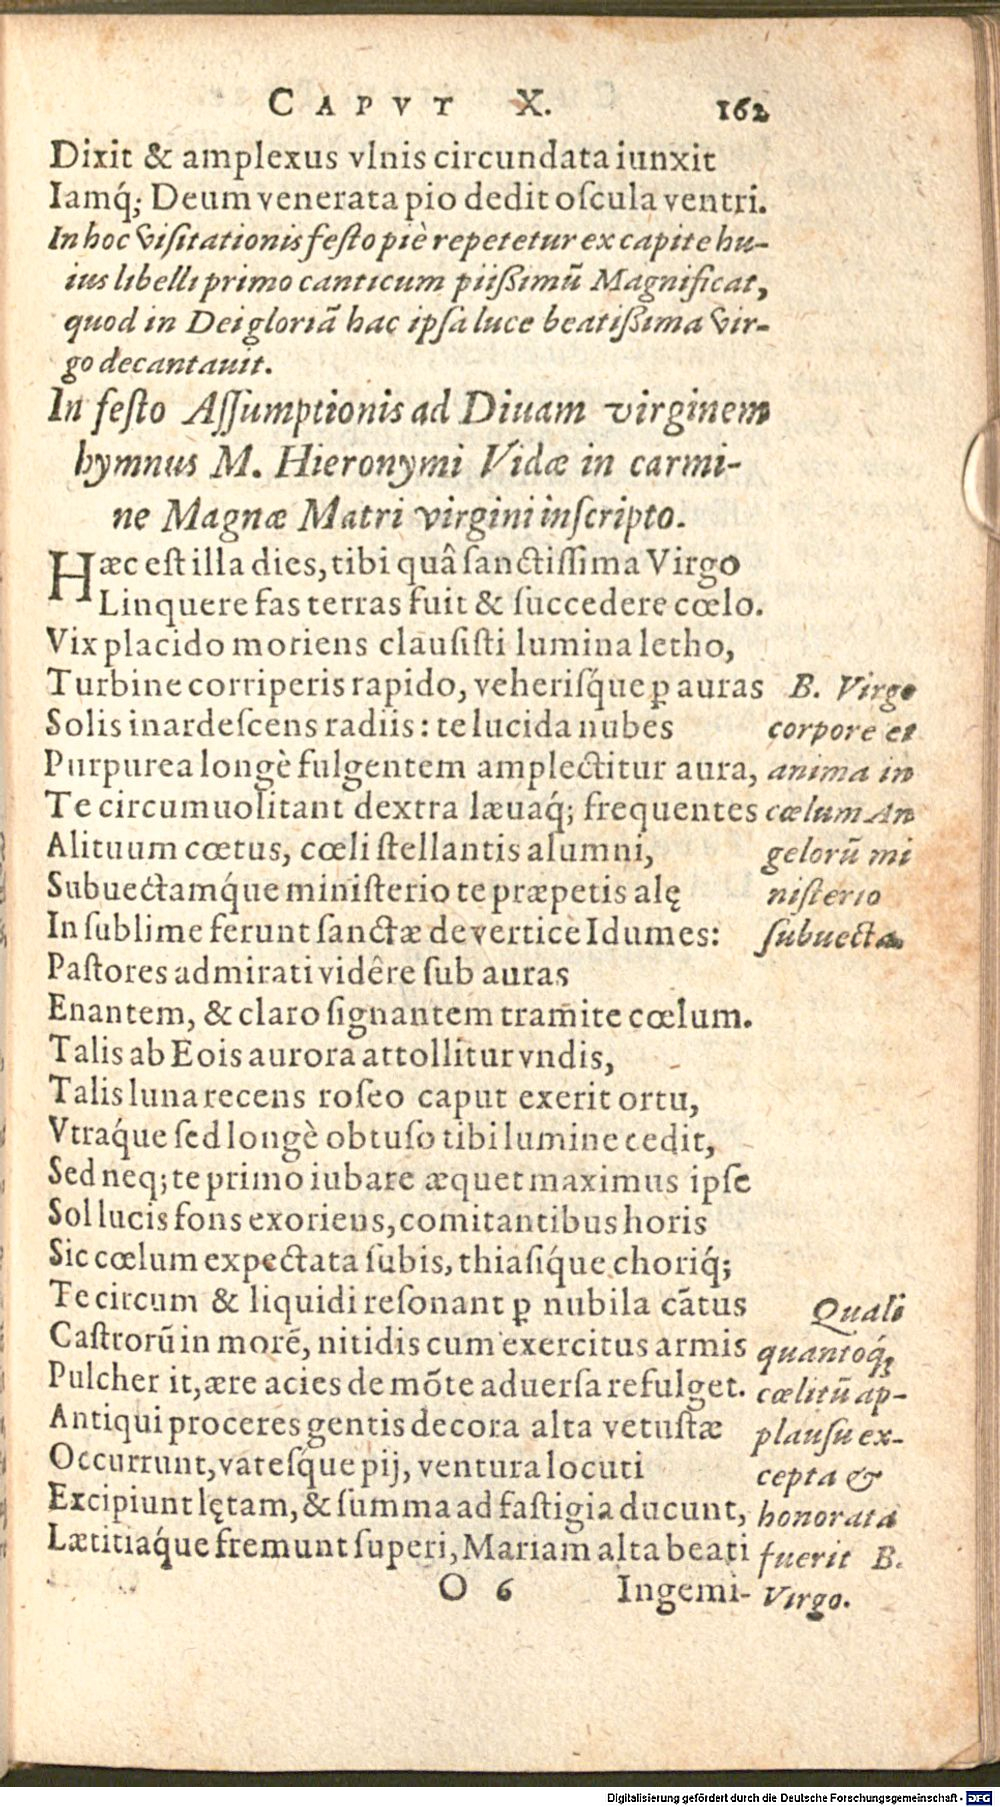 CAPVT X. 162
Dixit & amplexus vlnis circundata iunxit
Iamq́; Deum venerata pio dedit oscula ventri.
In hoc visitationis festo piè repetetur ex capite hu-
ius libelli primo canticum piißimũ Magnificat,
quod in Dei gloriã hac ipsa luce beatißima Vir-
go decantauit.
In festo Assumptionis ad Diuam virginem
hymnus M. Hieronymi Vidæ in carmi-
ne Magnæ Matri virgini inscripto.
Hæc est illa dies, tibi quâ sanctissima Virgo
Linquere fas terras fuit & succedere cœlo.
Vix placido moriens clausisti lumina letho,
Turbine corriperis rapido, veherisq́ue ꝑ auras
Solis inardescens radiis: te lucida nubes
Purpurea longè fulgentem amplectitur aura,
Te circumuolitant dextra læuaq́; frequentes
Alituum cœtus, cœli stellantis alumni,
Subuectamq́ue ministerio te præpetis alę
In sublime ferunt sanctæ de vertice Idumes:
B. Virgo
corpore et
anima in
cœlum An
gelorũ mi
nisterio
subuecta.
Pastores admirati vidêre sub auras
Enantem, & claro signantem tramite cœlum.
Talis ab Eois aurora attollitur vndis,
Talis luna recens roseo caput exerit ortu,
Vtraq́ue sed longè obtuso tibi lumine cedit,
Sed neq; te primo iubare æquet maximus ipse
Sol lucis fons exoriens, comitantibus horis
Sic cœlum expectata subis, thiasiq́ue choriq́;
Te circum & liquidi resonant ꝑ nubila cãtus
Castrorũ in morẽ, nitidis cum exercitus armis
Pulcher it, ære acies de mõte aduersa refulget.
Antiqui proceres gentis decora alta vetustæ
Occurrunt, vatesq́ue pij, ventura locuti
Excipiunt lętam, & summa ad fastigia ducunt,
Lætitiaq́ue fremunt superi, Mariam alta beati
Quali
quantoq́;
cœlitũ ap-
plausu ex-
cepta &
honorata
fuerit B.
Virgo.
O 6 Ingemi-
Digitalisierung gefördert durch die Deutsche Forschungsgemeinschaft - DFG